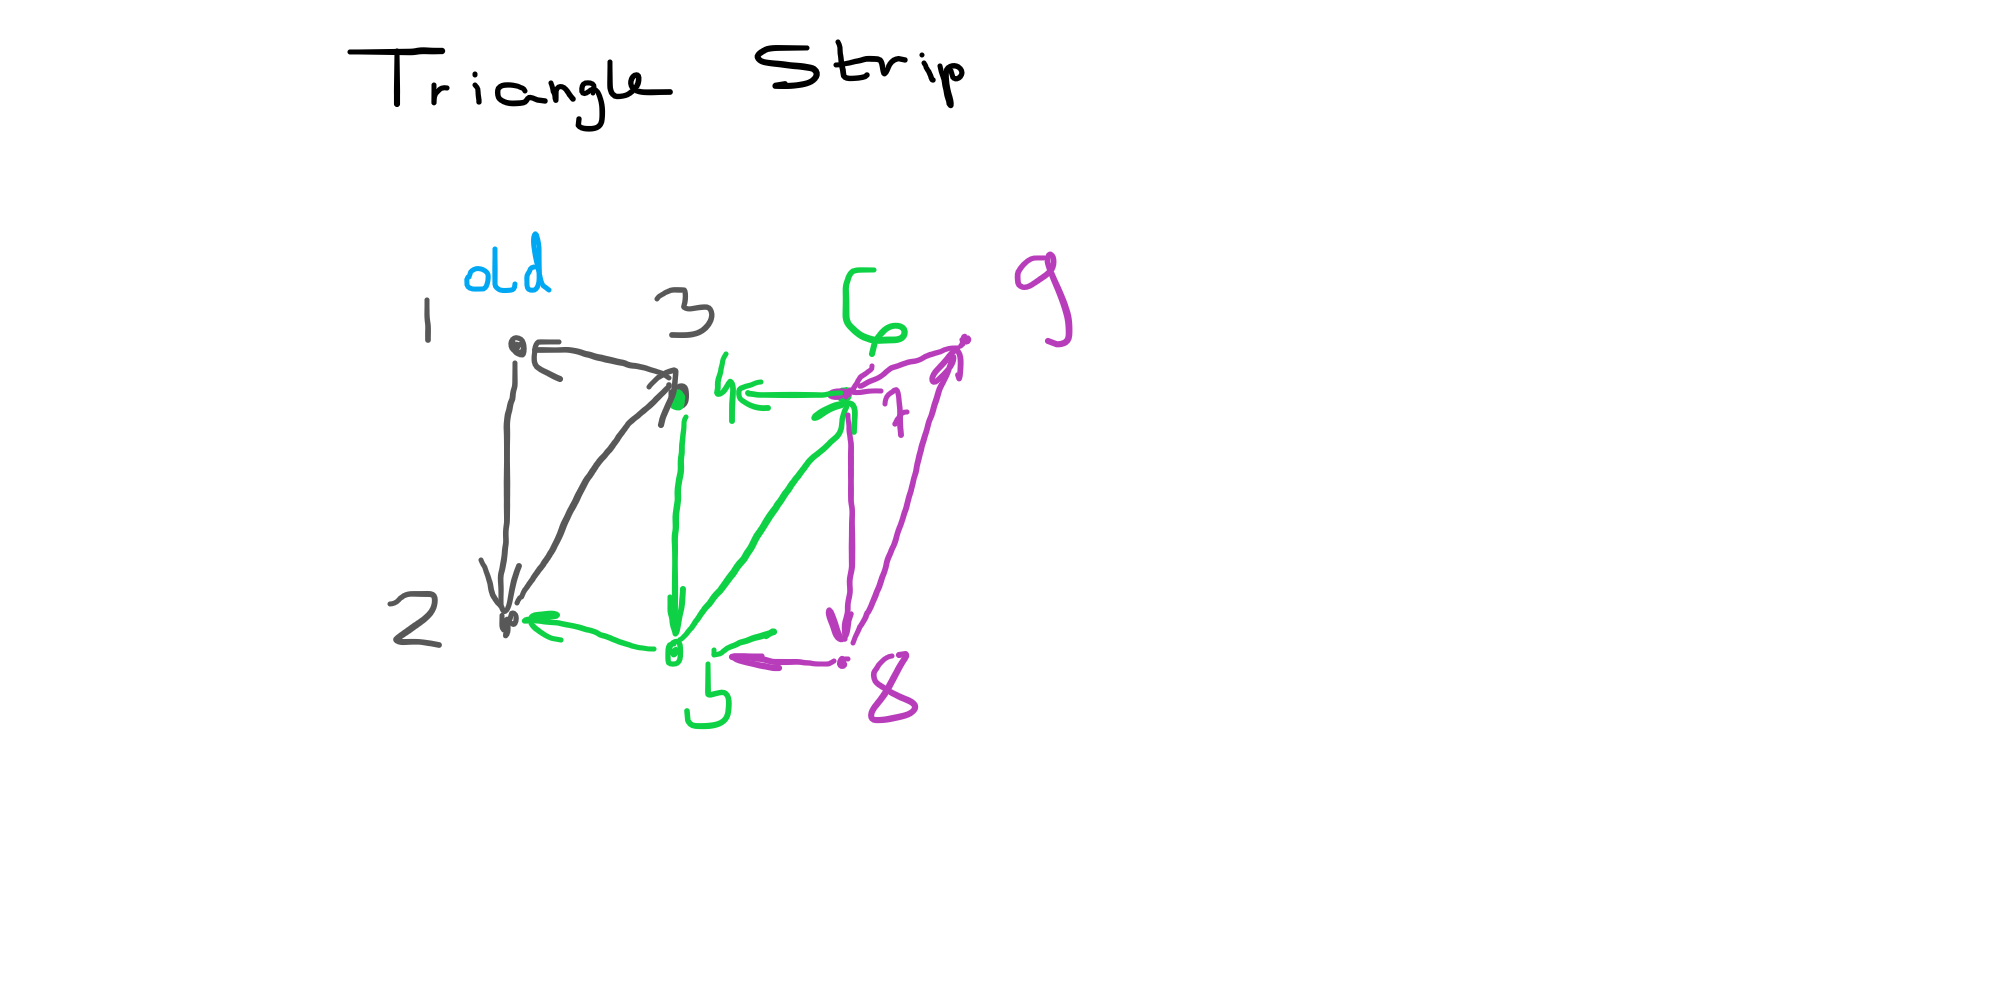 Triangle Strip
old
1 3 6 9
4 7
2
5 8